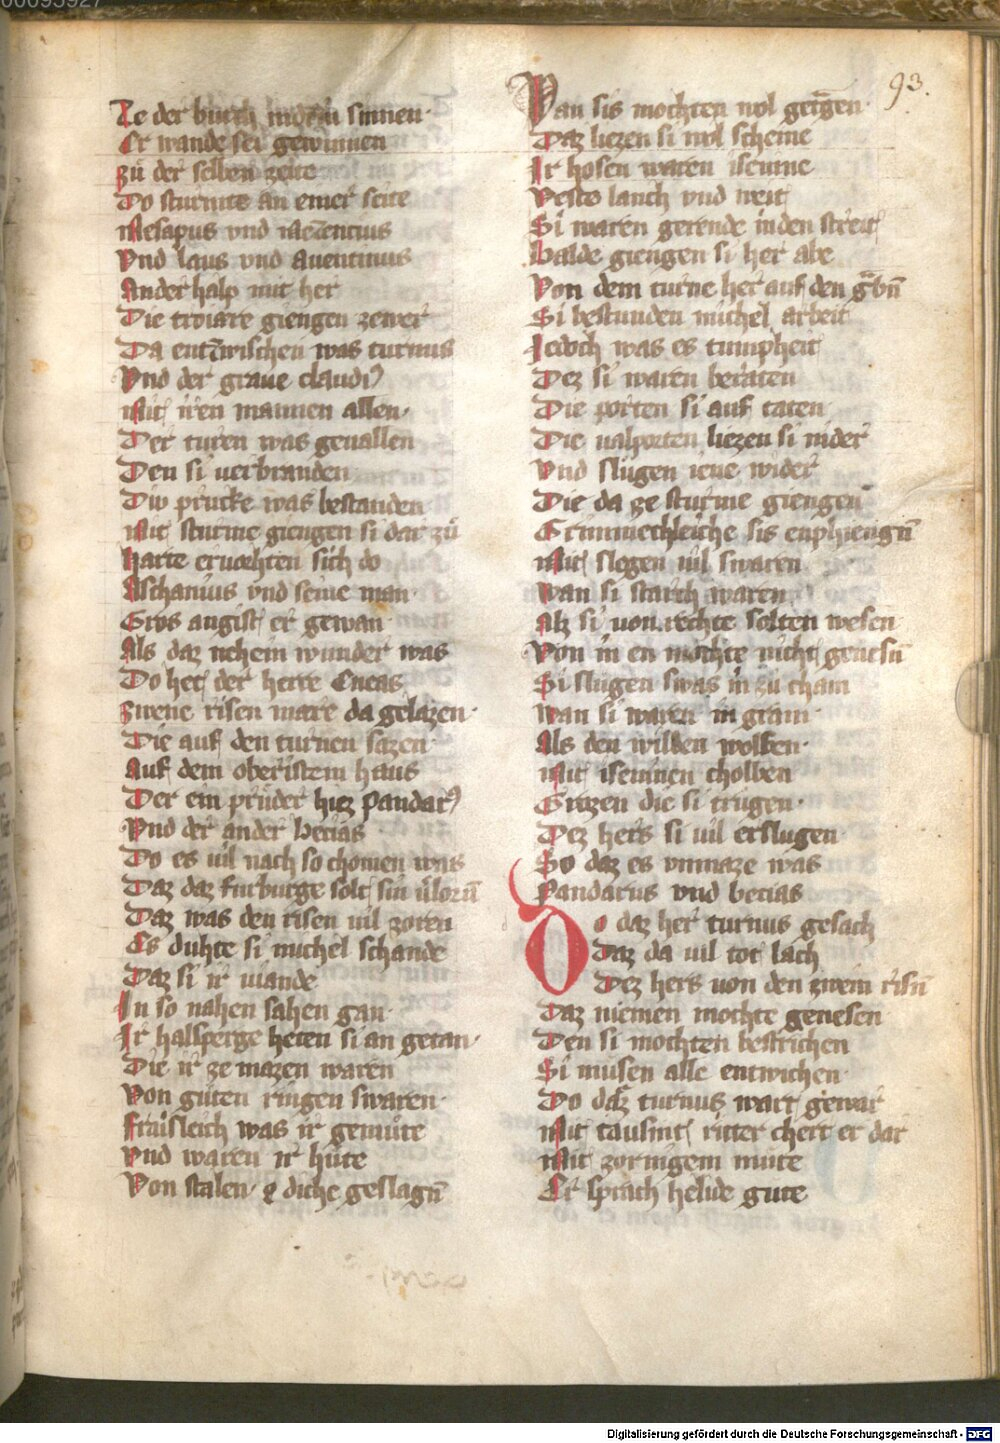 93.
Ze der burch in den sinnen·
Er wande sei gewinnen
Zů der selben zeite
Do sturmte an einer seite
Mesapus vnd Mecentius
Vnd laus vnd auentinus
Anderhalp mit her
Die troiare giengen zewer
Da entzwischen was turnus
Vnd der graue claudiꝰ
Mit iren mannen allen·
Der turen was geuallen
Den si uerbranden
Diu prucke was bestanden
Mit sturme giengen si dar zů
Harte eruæhten sich do
Aschanius vnd seine man·
Gros angist er gewan·
Als daz nehein wunder was
Do het der herre Eneas
Zwene risen mare da gelazen·
Die auf den turnen sazen·
Auf dem oberistem haus
Der ein průder hiez Pandarꝰ
Vnd der ander becias
Do es uil nach so chomen was
Daz daz furburge solt sin ůlorn̄
Daz was den risen uil zoren
Es duhte si michel schande
Daz si ir uiande
In so nahen sahen gan·
Ir halsperge heten si an getan·
Die ir ze mazen waren
Von gůten ringen swaren·
Fraisleich was ir gemůte
Vnd waren ir hůte
Von stalen diche geslagn̄
Wan sis mochten wol getrāgen·
Daz liezen si wol scheine
Ir hosen waren iseinne
Veste lanch vnd weit
Si waren gerende in den streit
Balde giengen si her abe
Von dem turne her auf den grabn̄
Si bestunden michel arbeit
Iedoch was es tumpheit
Dez si waren beraten
Die porten si auf taten·
Die ualporten liezen si nider
Vnd slůgen iene wider
Die da ze sturme giengen
Grimmechleiche sis enphiengn̄
Mit slegen uil swaren
Wan si starch waren
Alz si von rechte solten wesen
Von in en mochte nicht genesn̄
Si slůgen swas in zů cham
Wan si waren in gram·
Als den wilden wolfen·
Mit iseinnen cholben
Grozen die si trůgen·
Dez hers si uil erslugen·
So daz es vnmaze was
Pandarus vnd becias
Do daz her turnus gesach
Daz da uil tot lach
Dez hers von den zwein risn̄
Daz niemen mochte genesen
Den si mochten bestrichen
Si můsen alle entwichen·
Do daz turnus wart gewar
Mit tausint ritter chert er dar
Mit zornigem můte
Er sprach helide gůte
Digitalisierung gefördert durch die Deutsche Forschungsgemeinschaft - DFG